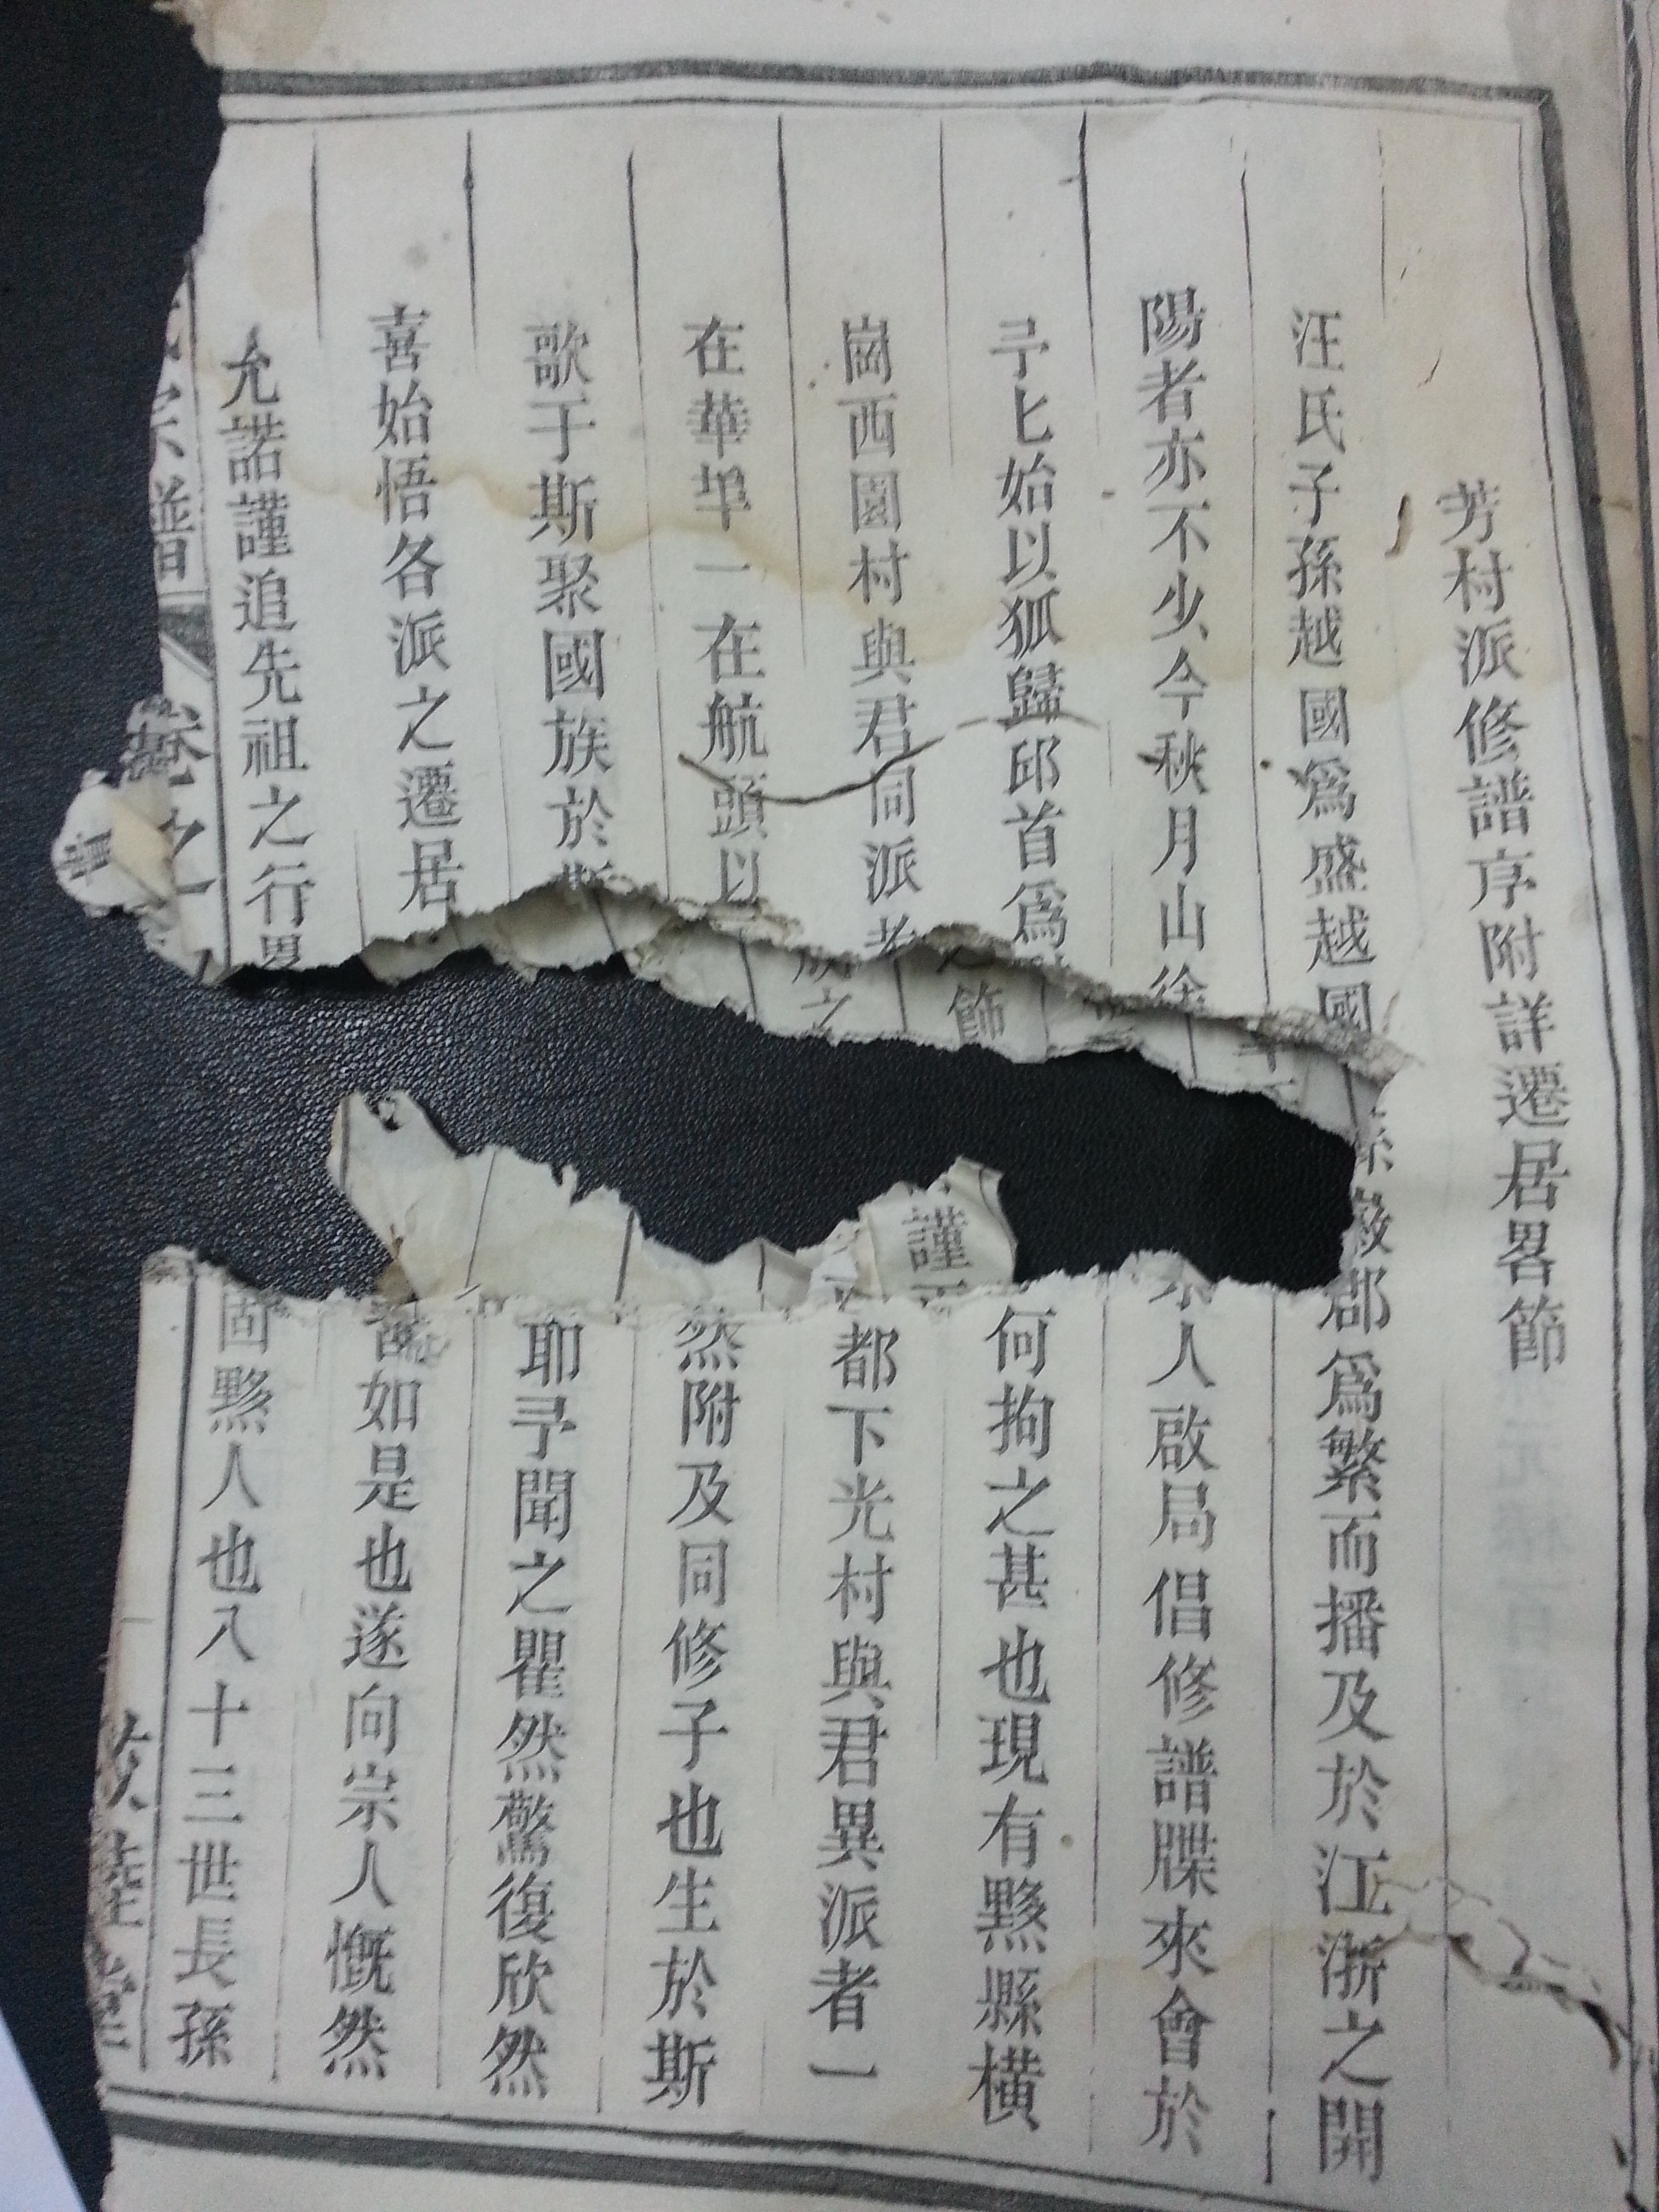 芳村派修譜序附詳遷居畧節
汪氏子孫越國爲盛越國 郡爲繁而播及於江浙之開
陽者亦不少今秋月山徐 人啟局倡修譜牒來會於
予匕始以狐歸邱首爲 何拘之甚也現有黟縣橫
崗西園村與君同派者 都下光村與君異派者一
在華㘽一在航頭以 然附及同修子也生於斯
歌于斯聚國族於斯 耶予聞之瞿然驚復欣然
喜始悟各派之遷居 如是也遂向宗人慨然
允諾謹追先祖之行 固黟人也八十三世長孫
宗譜
節
謹